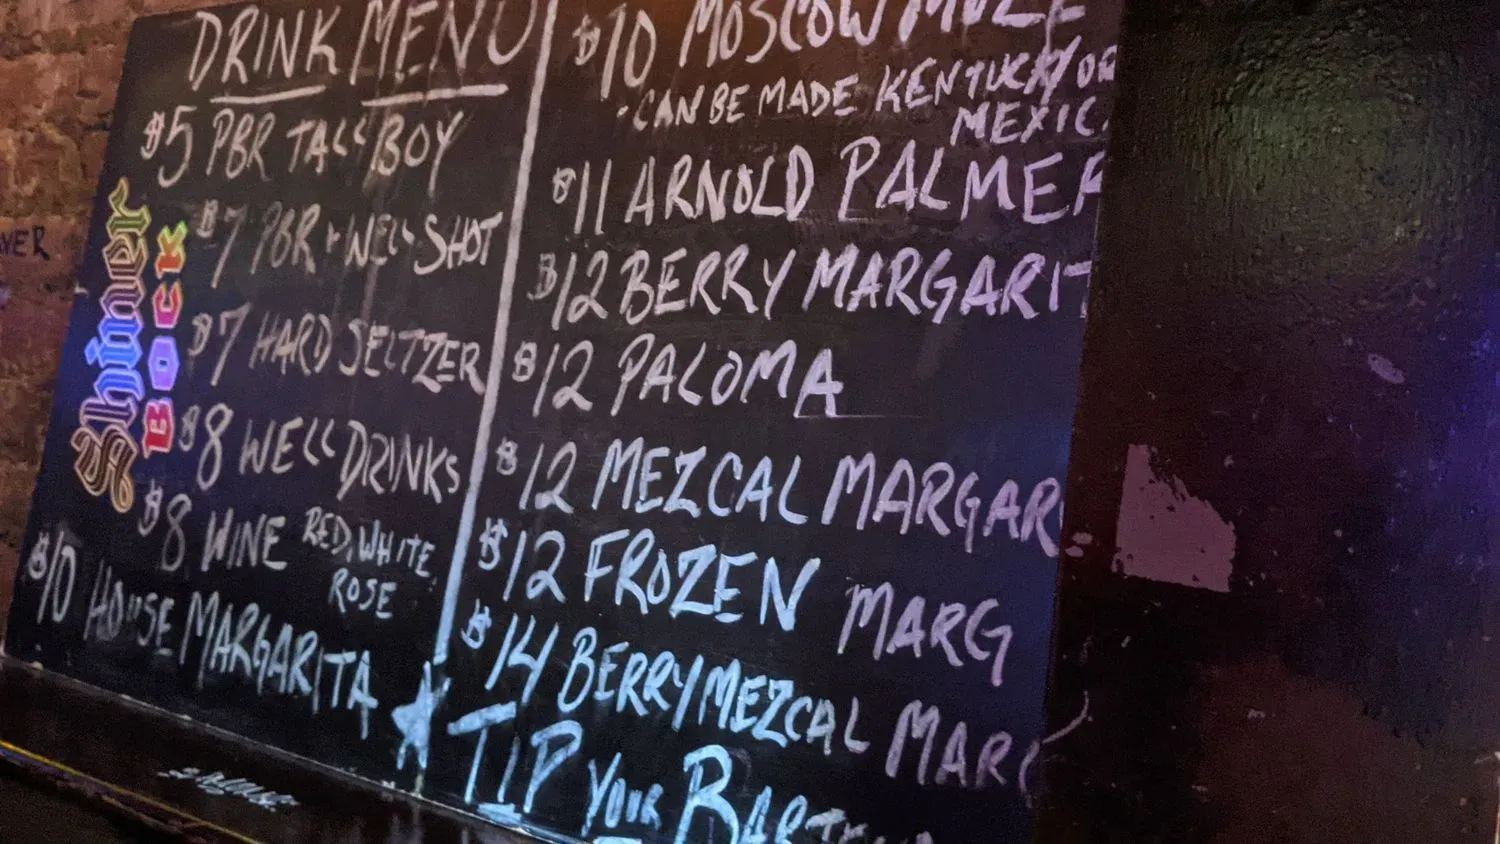 DRINK MENU
$5 PBR TALL BOY
$7 PBR + WELL SHOT
$7 HARD SELTZER
$8 WELL DRINKS
$8 WINE RED, WHITE,
ROSE
$10 HOUSE MARGARITA
Shiner
BOCK
$10 MOSCOW MULE
• CAN BE MADE KENTUCKY OR
MEXIC
$11 ARNOLD PALMER
$12 BERRY MARGARIT
$12 PALOMA
$12 MEZCAL MARGAR
$12 FROZEN MARG
$14 BERRY MEZCAL MARG
TIP YOUR